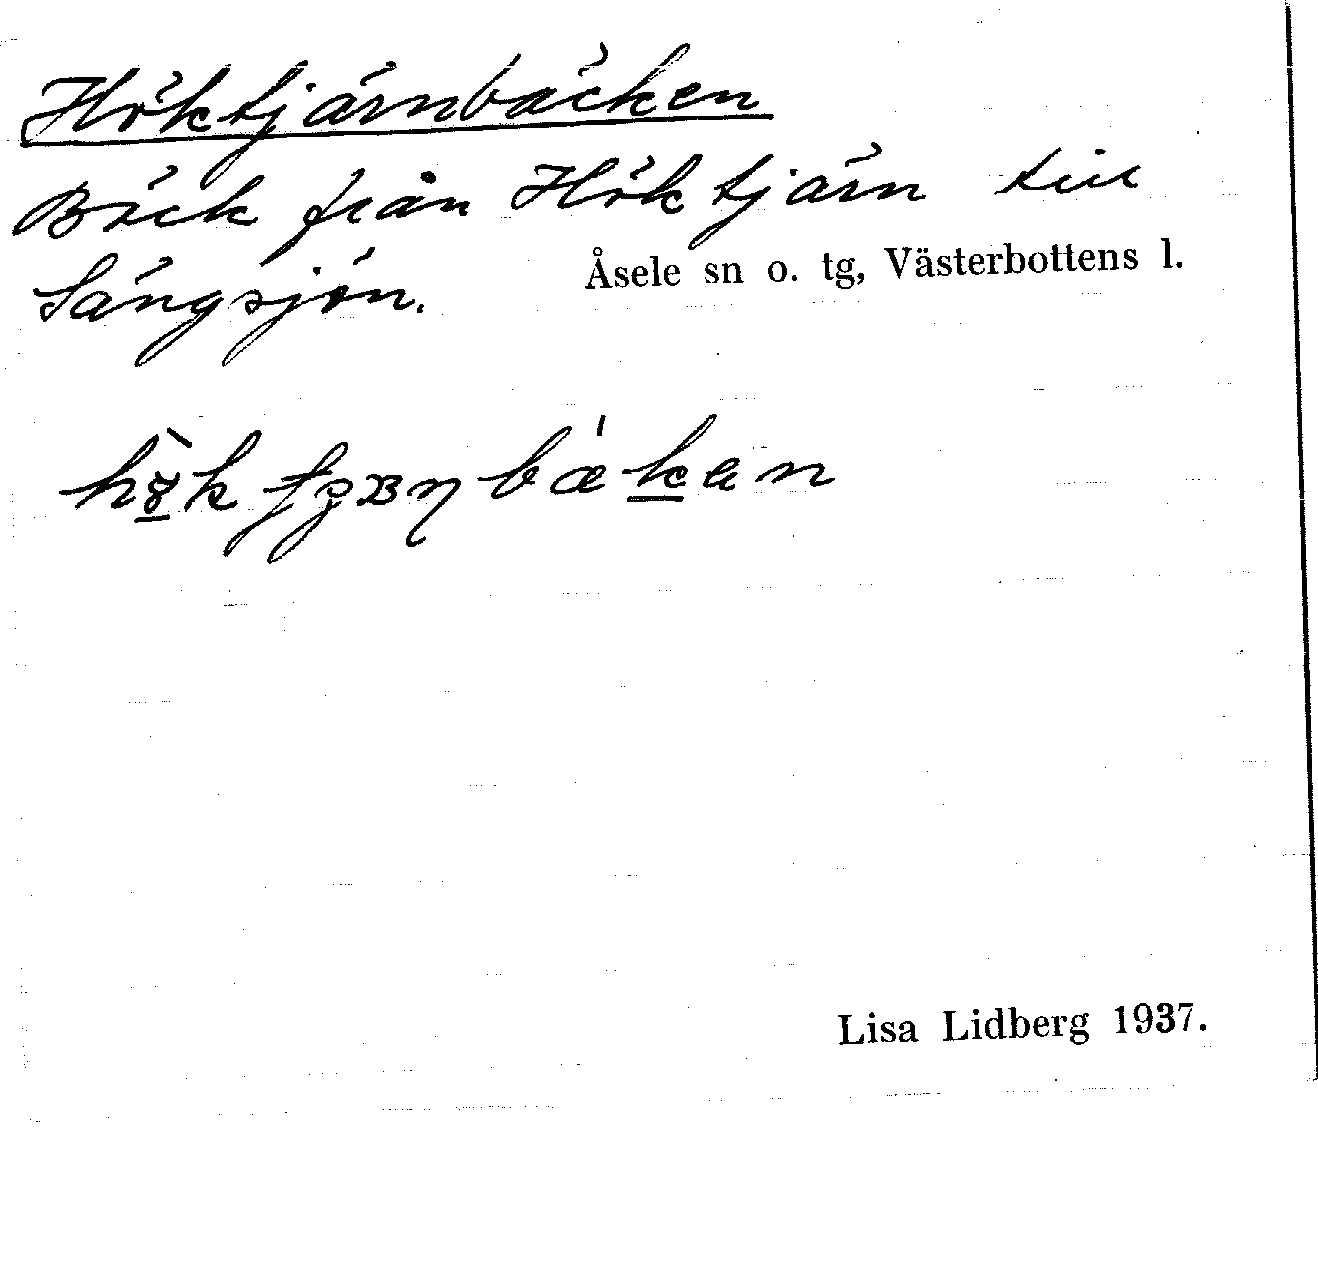 Höktjärnbäcken
Bäck från Höktjärn till
Sängsjön.
Åsele sn o. tg, Västerbottens l.
Lisa Lidberg 1937.